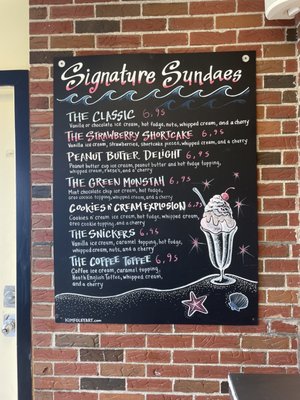 Signature Sundaes
THE CLASSIC 6,95
Vanilla or chocolate ice cream, hot fudge, nuts, whipped cream, and a cherry
THE STRAWBERRY SHORTCAKE 6,95
Vanilla ice cream, strawberries, shortcake pieces, whipped cream, and a cherry
PEANUT BUTTER DELIGHT 6,95
Peanut butter cup ice cream, peanut butter and hot fudge topping,
whipped cream, reese's, and a cherry
THE GREEN MONSTAH 6,95
Mint chocolate chip ice cream, hot fudge,
oreo cookie topping, whipped cream, and a cherry
COOKIES N' CREAM EXPLOSION 6,95
Cookies n' cream ice cream, hot fudge, whipped cream,
oreo cookie topping, and a cherry
THE SNICKERS 6,95
Vanilla ice cream, caramel topping, hot fudge,
whipped cream, nuts, and a cherry
THE COFFEE TOFFEE 6,95
Coffee ice cream, caramel topping,
Heath English Toffee, whipped cream,
and a cherry